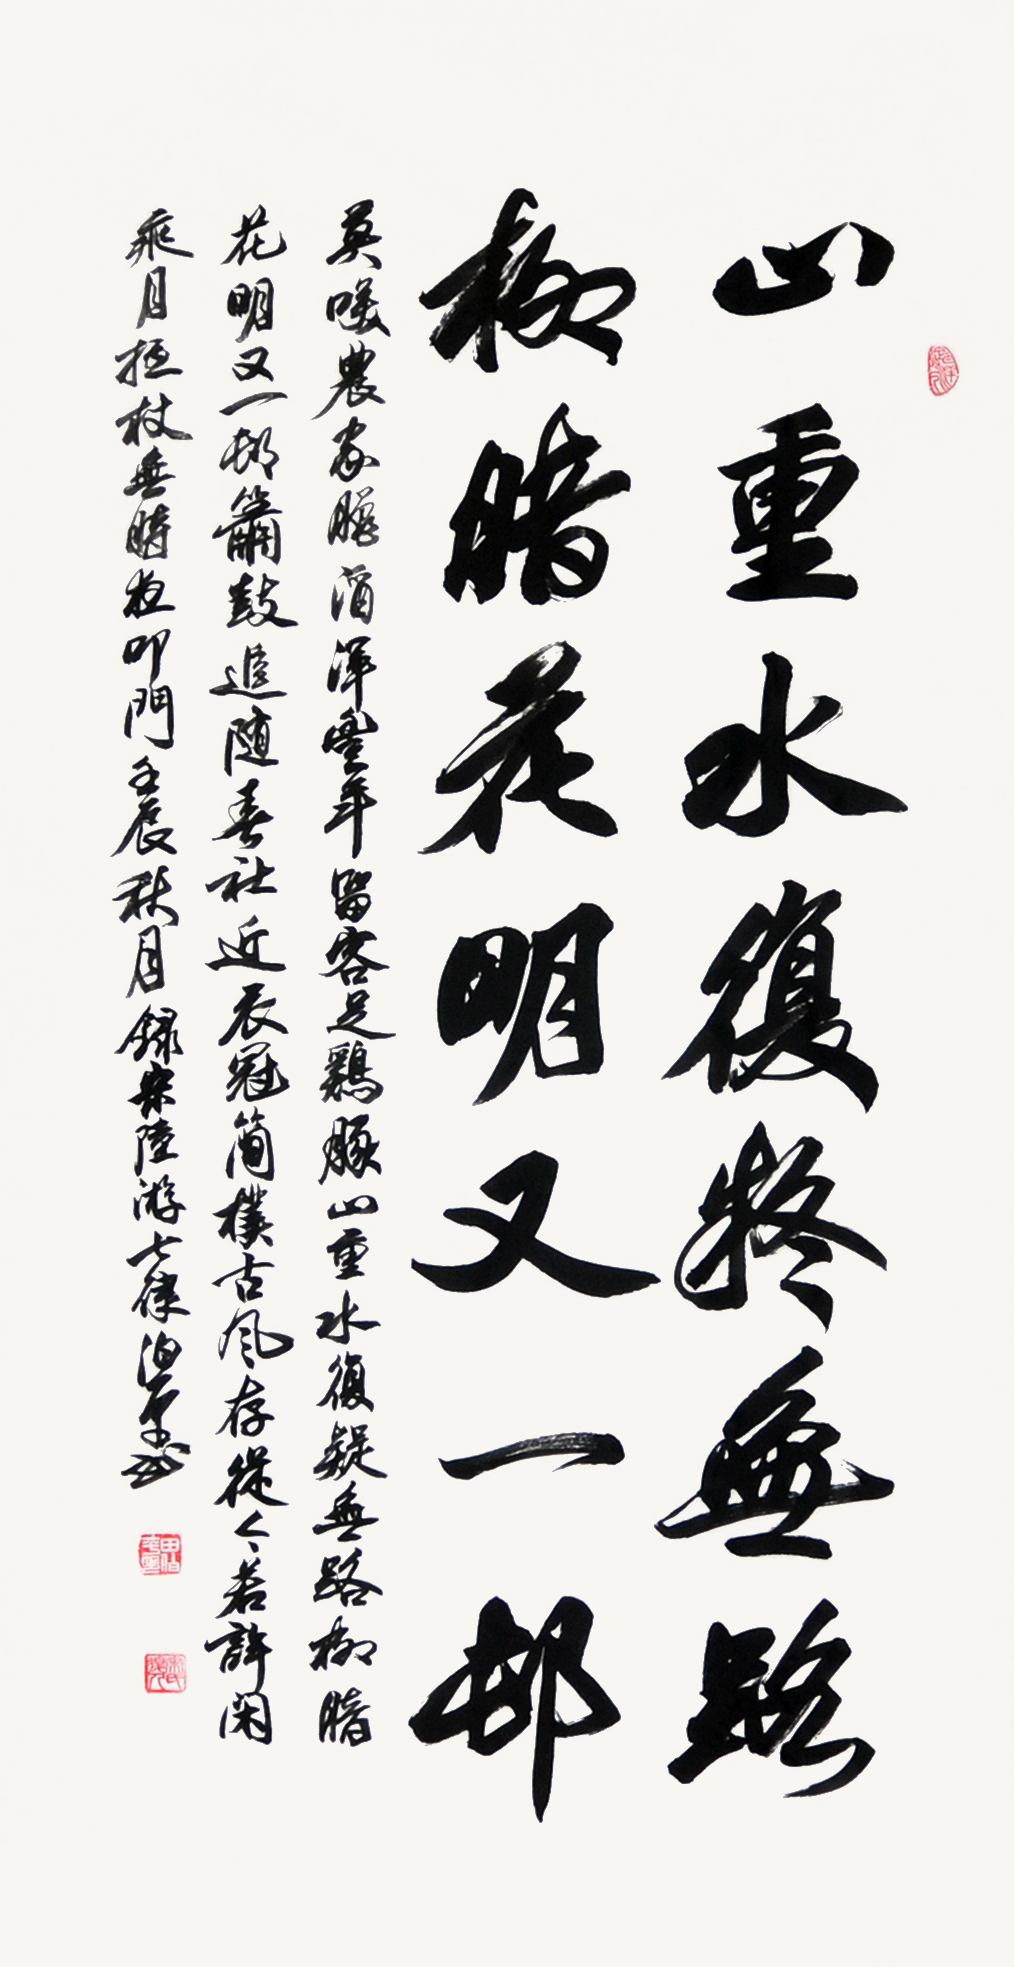 山重水復疑無路
柳暗花明又一邨
莫咲農家臘酒渾豐年留客足鷄豚山重水復疑無路柳暗
花明又一邨簫鼓追随春社近衣冠簡樸古風存從今若許閑
乘月拄杖無時夜叩門壬辰秋月錄宋陸游七律